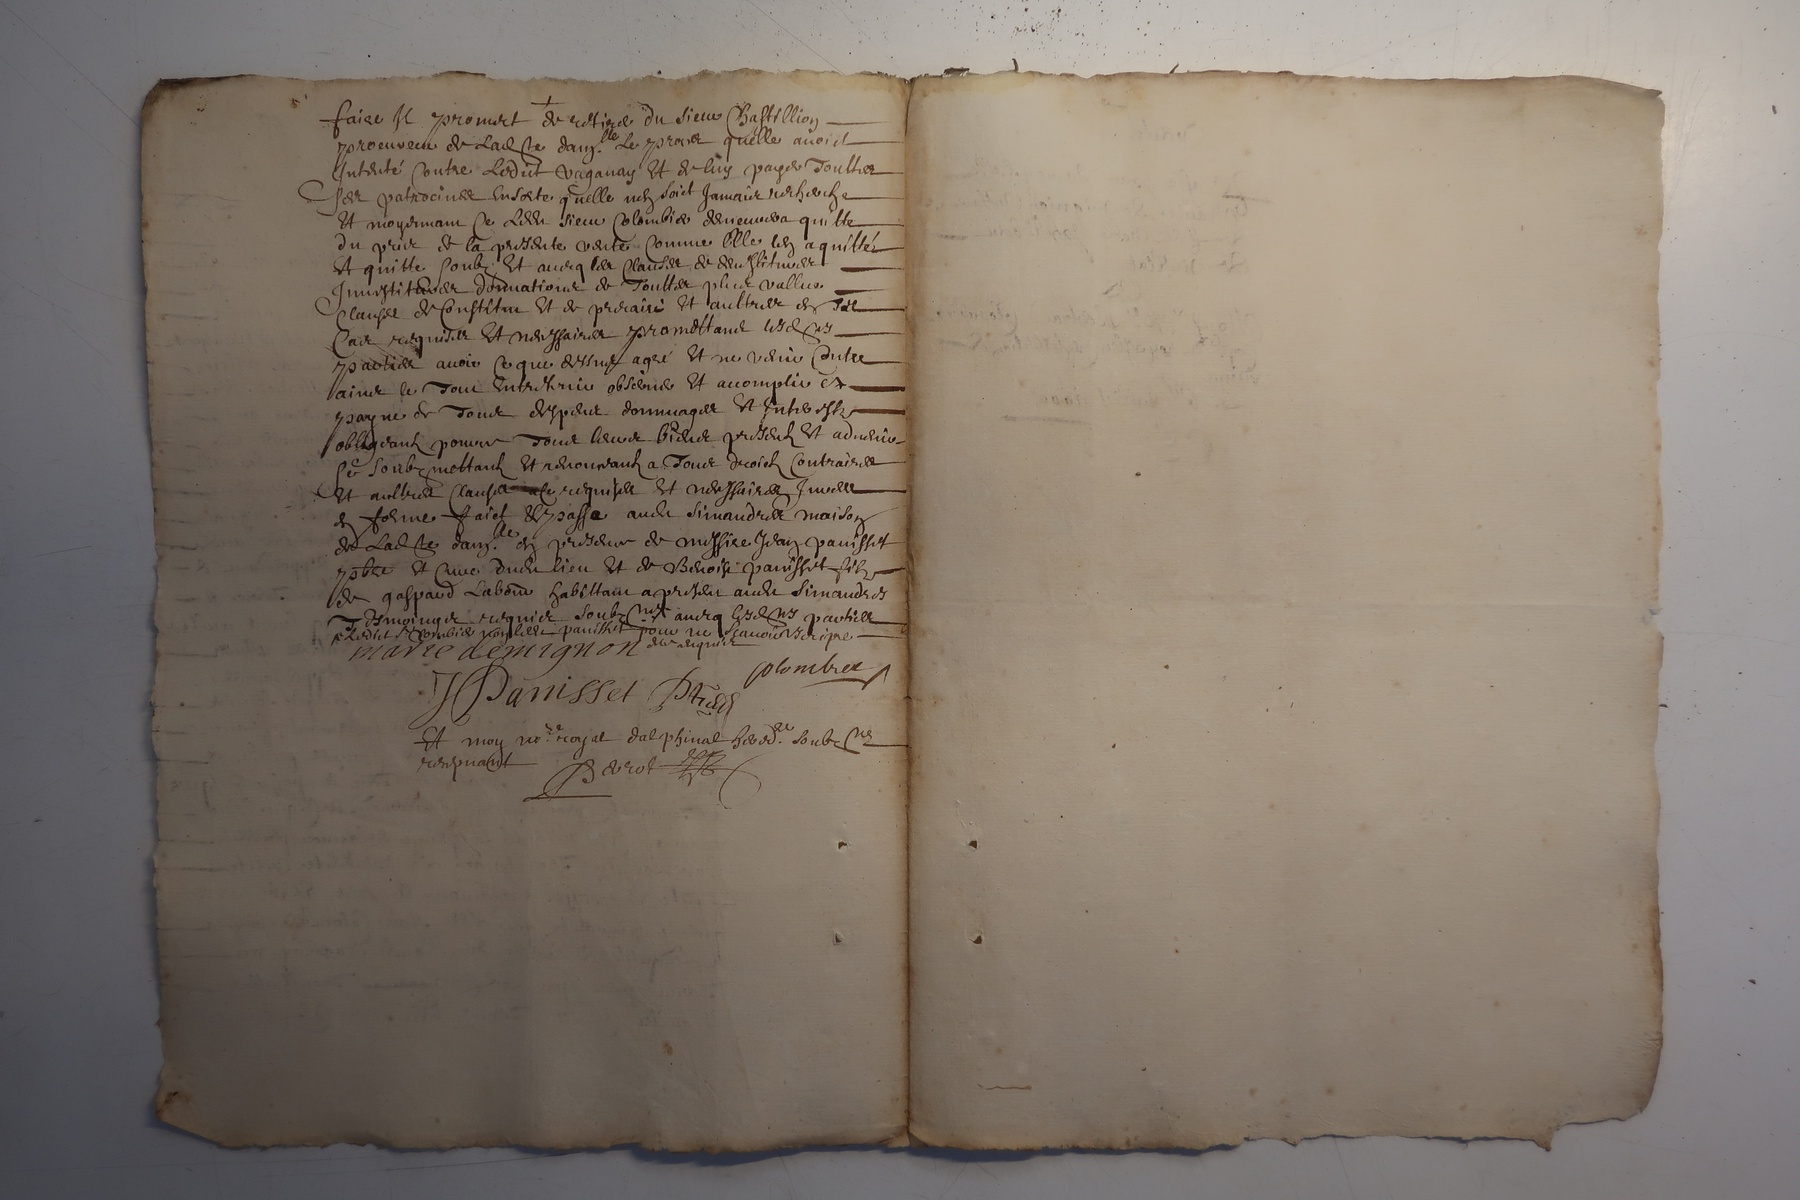 faire Il promect de retirer du sieur Chastillion
procureur de Ladte damlle le proces quelle avoict
Intenté contre Ledict vaganay Et de luy payer Touttes
ses patrocines Ensorte quelle nen soict Jamais recherche
Et moyennant ce Ledt sieur Colombier demeurera quitte
du prix de la presente vente comme Elle len a quitté
Et quitte soubz Et avecq les clauses de devestitures
Investitures donnations de Touttes plus vallues
clauses de Constitut Et de precaire Et aultres en Tel
Cas requises Et necessaires promettant lesdes
parties avoir ce que dessus agreé Et ne venir Contre
ains le Tout Entretenir observer Et acomplir a
payne de Tous despens dommages Et Interestz
obligeantz pource Tous leurs biens presentz Et advenir
se soubzmettantz Et renonceantz a Tous droictz Contraires
Et aultres clauses requises Et necessaires Juree
en forme faict Et passe audt simandres maison
de Ladte damlle en presence de messire Jean panisset
pbre Et Cure dudt lieu Et de Benoist panisset filz
de gaspard Laboure habittant a present audt simandres
Tesmoings requis soubznes avecq lesdes parties
Ledt panisset pour ne scavoir Escripre
marie demignon de ce requis
Colombier
J Panisset Ptre
Et moy nore royal dalphinal hered.re soubzne
recepvant
Perrot